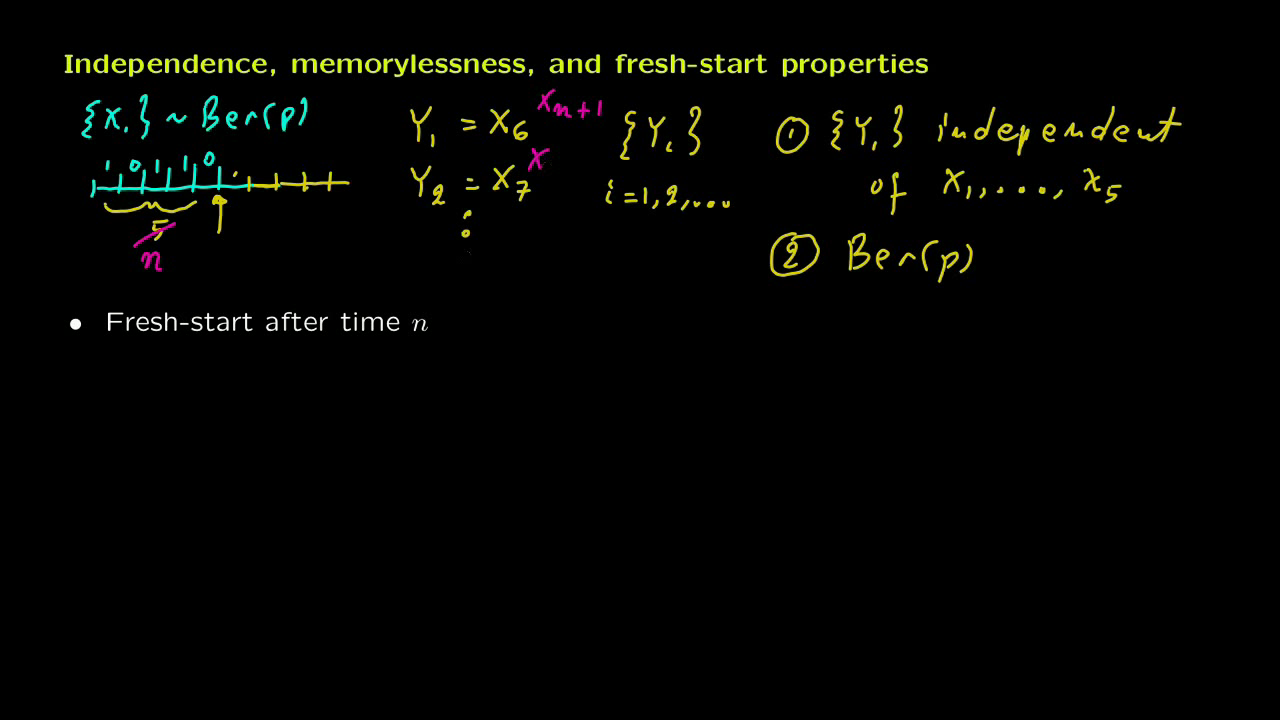 Independence, memorylessness, and fresh-start properties
{X_i} ~ Ber(p)
1 0 1 1 0
5
n
Y_1 = X_6 X_{n+1}
Y_2 = X_7 X
⋮
{Y_i}
i = 1, 2, ...
① {Y_i} independent
of X_1, ..., X_5
② Ber(p)
• Fresh-start after time n